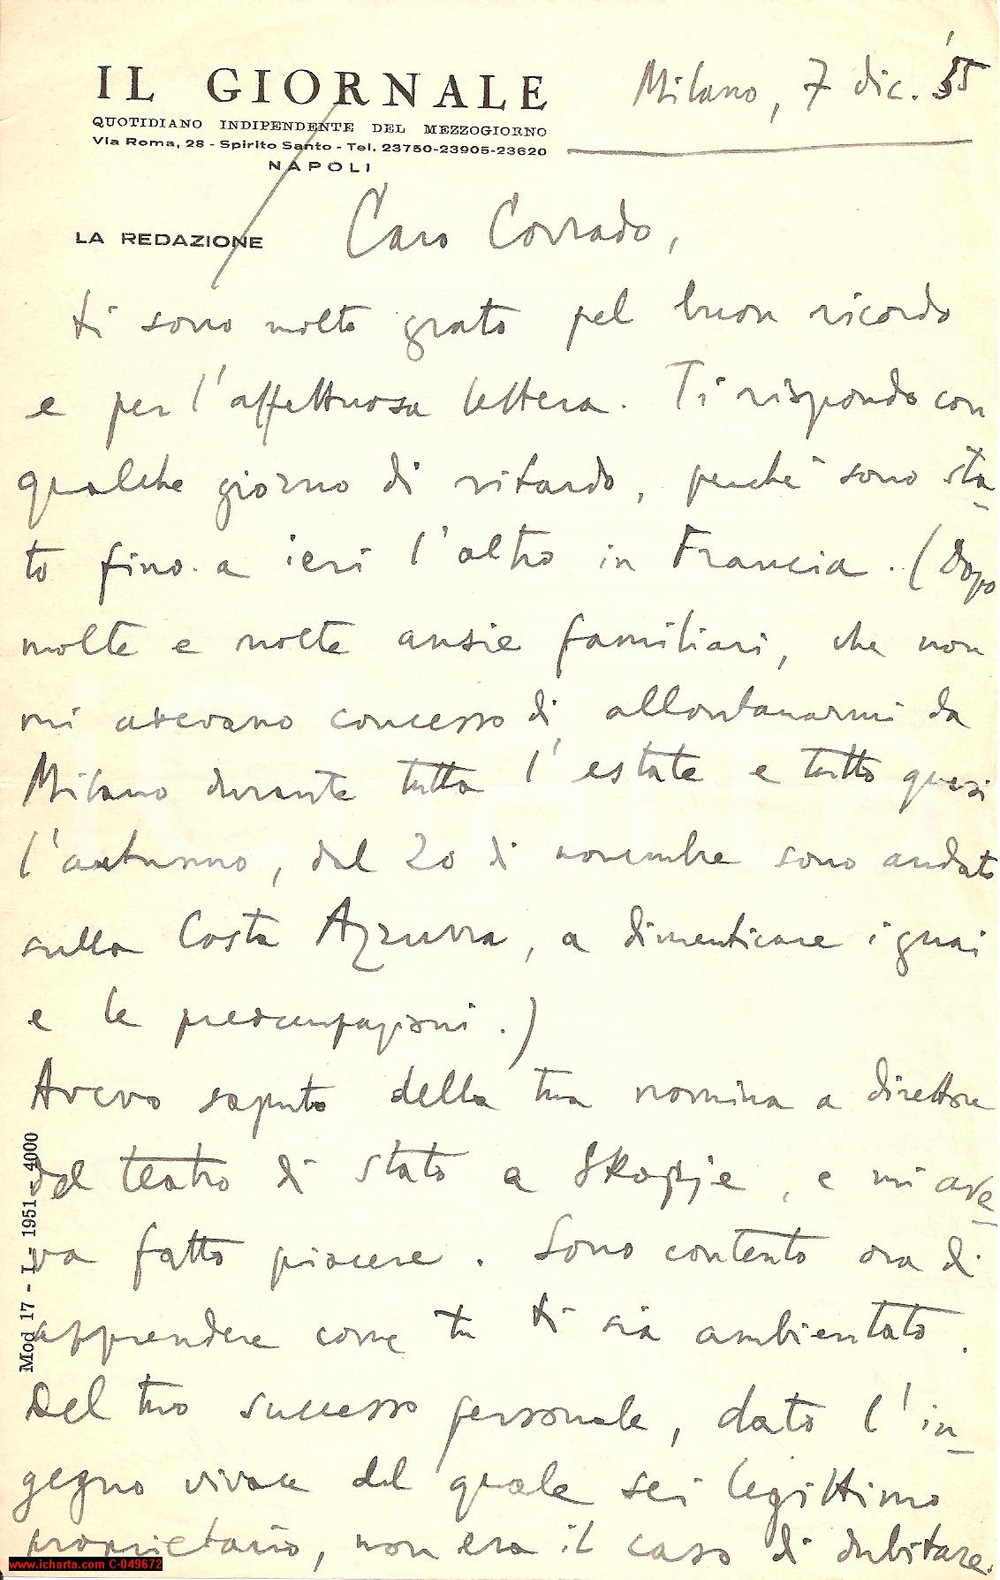 IL GIORNALE
QUOTIDIANO INDIPENDENTE DEL MEZZOGIORNO
Via Roma, 28 - Spirito Santo - Tel. 23750-23905-23620
NAPOLI
Milano, 7 dic. '55
LA REDAZIONE
Caro Corrado,
ti sono molto grato pel buon ricordo
e per l'affettuosa lettera. Ti rispondo con
qualche giorno di ritardo, perché sono sta-
to fino a ieri l'altro in Francia. (Dopo
molte e molte ansie familiari, che non
mi avevano concesso di allontanarmi da
Milano durante tutta l'estate e tutto quasi
l'autunno, dal 20 di novembre sono andato
sulla Costa Azzurra, a dimenticare i guai
e le preoccupazioni.)
Avevo saputo della tua nomina a direttore
del teatro di stato a Skopje, e mi ave-
va fatto piacere. Sono contento ora di
apprendere come tu ti sia ambientato.
Del tuo successo personale, dato l'in-
gegno vivace del quale sei legittimo
proprietario, non era il caso di dubitare.
Mod 17 - L - 1951 - 4000
www.icharta.com C-049672